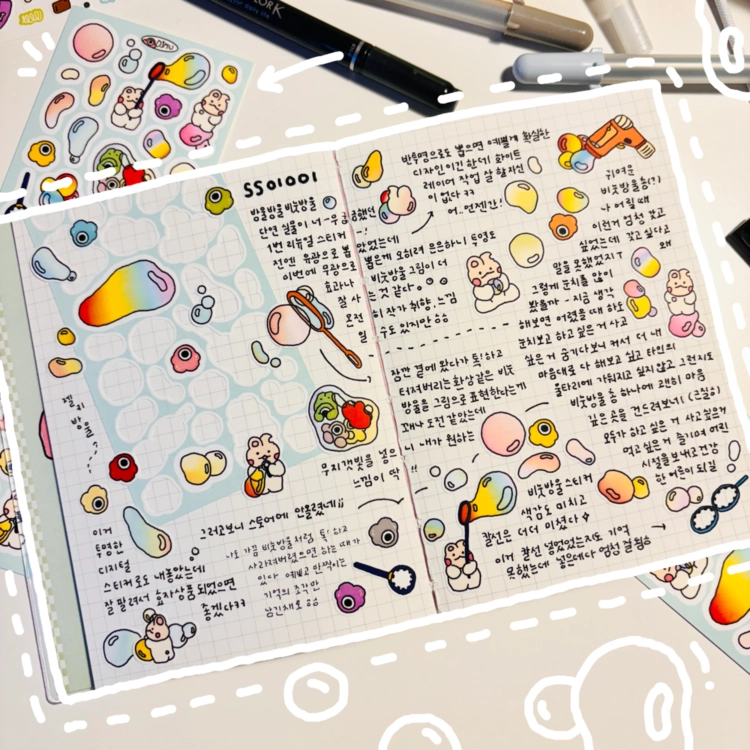 SS01001
방울방울 비눗방울
단연 실물이 너무 궁금했던
1번 리뉴얼 스티커 
전엔 유광으로 뽑았었는데
이번에 무광으로 뽑은게 오히려 은은하니 투명도
효과나 비눗방울 그림이 더
잘 사는 것 같다
온전히 작가 취향, 느낌
일 수도 있지만
젤리
방울
무지개빛을 넣으니 내가 원하는
느낌이 딱!!
이거
투명한
디지털
스티커로도 내놓았는데
잘 팔려서 효자상품 되었으면
좋겠다ㅋㅋ
그러고보니 스토어에 안올렸네
나도 가끔 비눗방울처럼 톡! 하고
사라져버렸으면 하는 때가
있다 예쁘고 반짝이는
기억의 조각만
남긴채로
반투명으로도 뽑으면 예쁠게 확실한
디자인이긴 한데 화이트
레이어 작업 살 할자신
이 없다ㅋㅋ
어..언젠간!
잠깐 곁에 왔다가 톡! 하고
터져버리는 환상같은 비눗
방울을 그림으로 표현한다는게
꽤나 도전 같았는데
비눗방울 스티커
색감도 미치고
칼선은 더더 미쳤다
이거 칼선 넣었었는지도 기억
못했는데 넣은데다 엄청 잘됨
귀여운
비눗방울총이
나 어릴 때
이런거 엄청 갖고
싶었는데 갖고싶다고
말을 못했었지 왜
그렇게 눈치를 많이
봤을까 - 지금 생각
해보면 어렸을 때 하도
눈치보고 하고싶은 거 사고
싶은 거 숨기다보니 커서 더 내
마음대로 다 해보고 싶고 타인의
울타리에 가둬지고 싶지 않고 그런지도
비눗방울 총 하나에 괜히 마음
깊은 곳을 건드려보네
모두가 하고 싶은 거 사고싶은거
먹고 싶은거 즐기며 어린
시절을 보내고 건강
한 어른이 되길